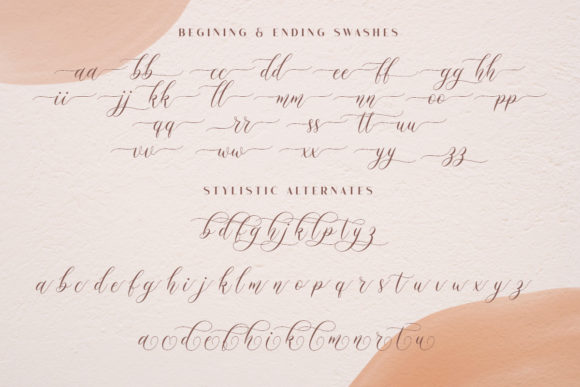 BEGINING & ENDING SWASHES
aa bb cc dd ee ff gg hh
ii jj kk ll mm nn oo pp
qq rr ss tt uu
vv ww xx yy zz
STYLISTIC ALTERNATES
bdfghjklptyz
abcdefghijklmnopqrstuvwxyz
acdefhiklmnrtu